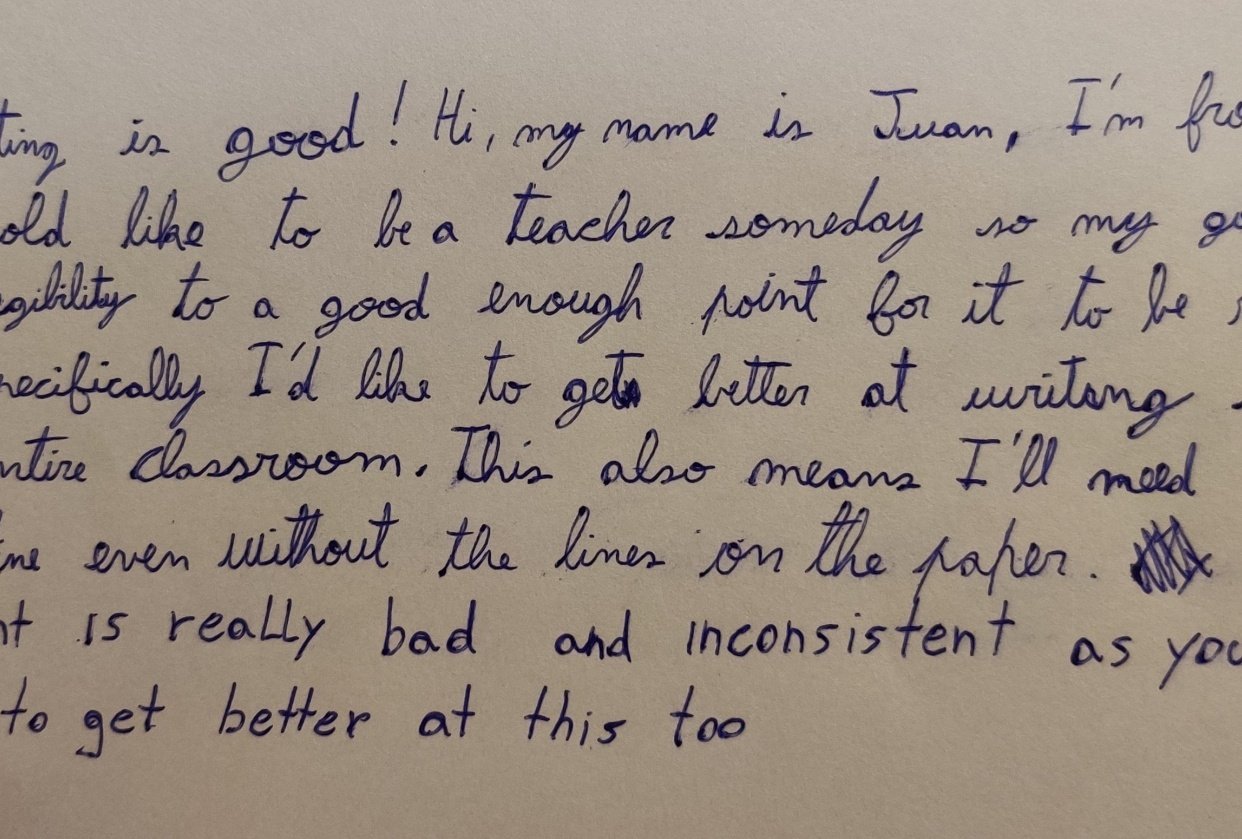 ting is good! Hi, my name is Juan, I'm fro
old like to be a teacher someday so my go
gibility to a good enough point for it to be s
pecifically I'd like to get better at writang
ntire classroom. This also means I'll need
ine even without the lines on the paper.
nt is really bad and inconsistent as you
to get better at this too